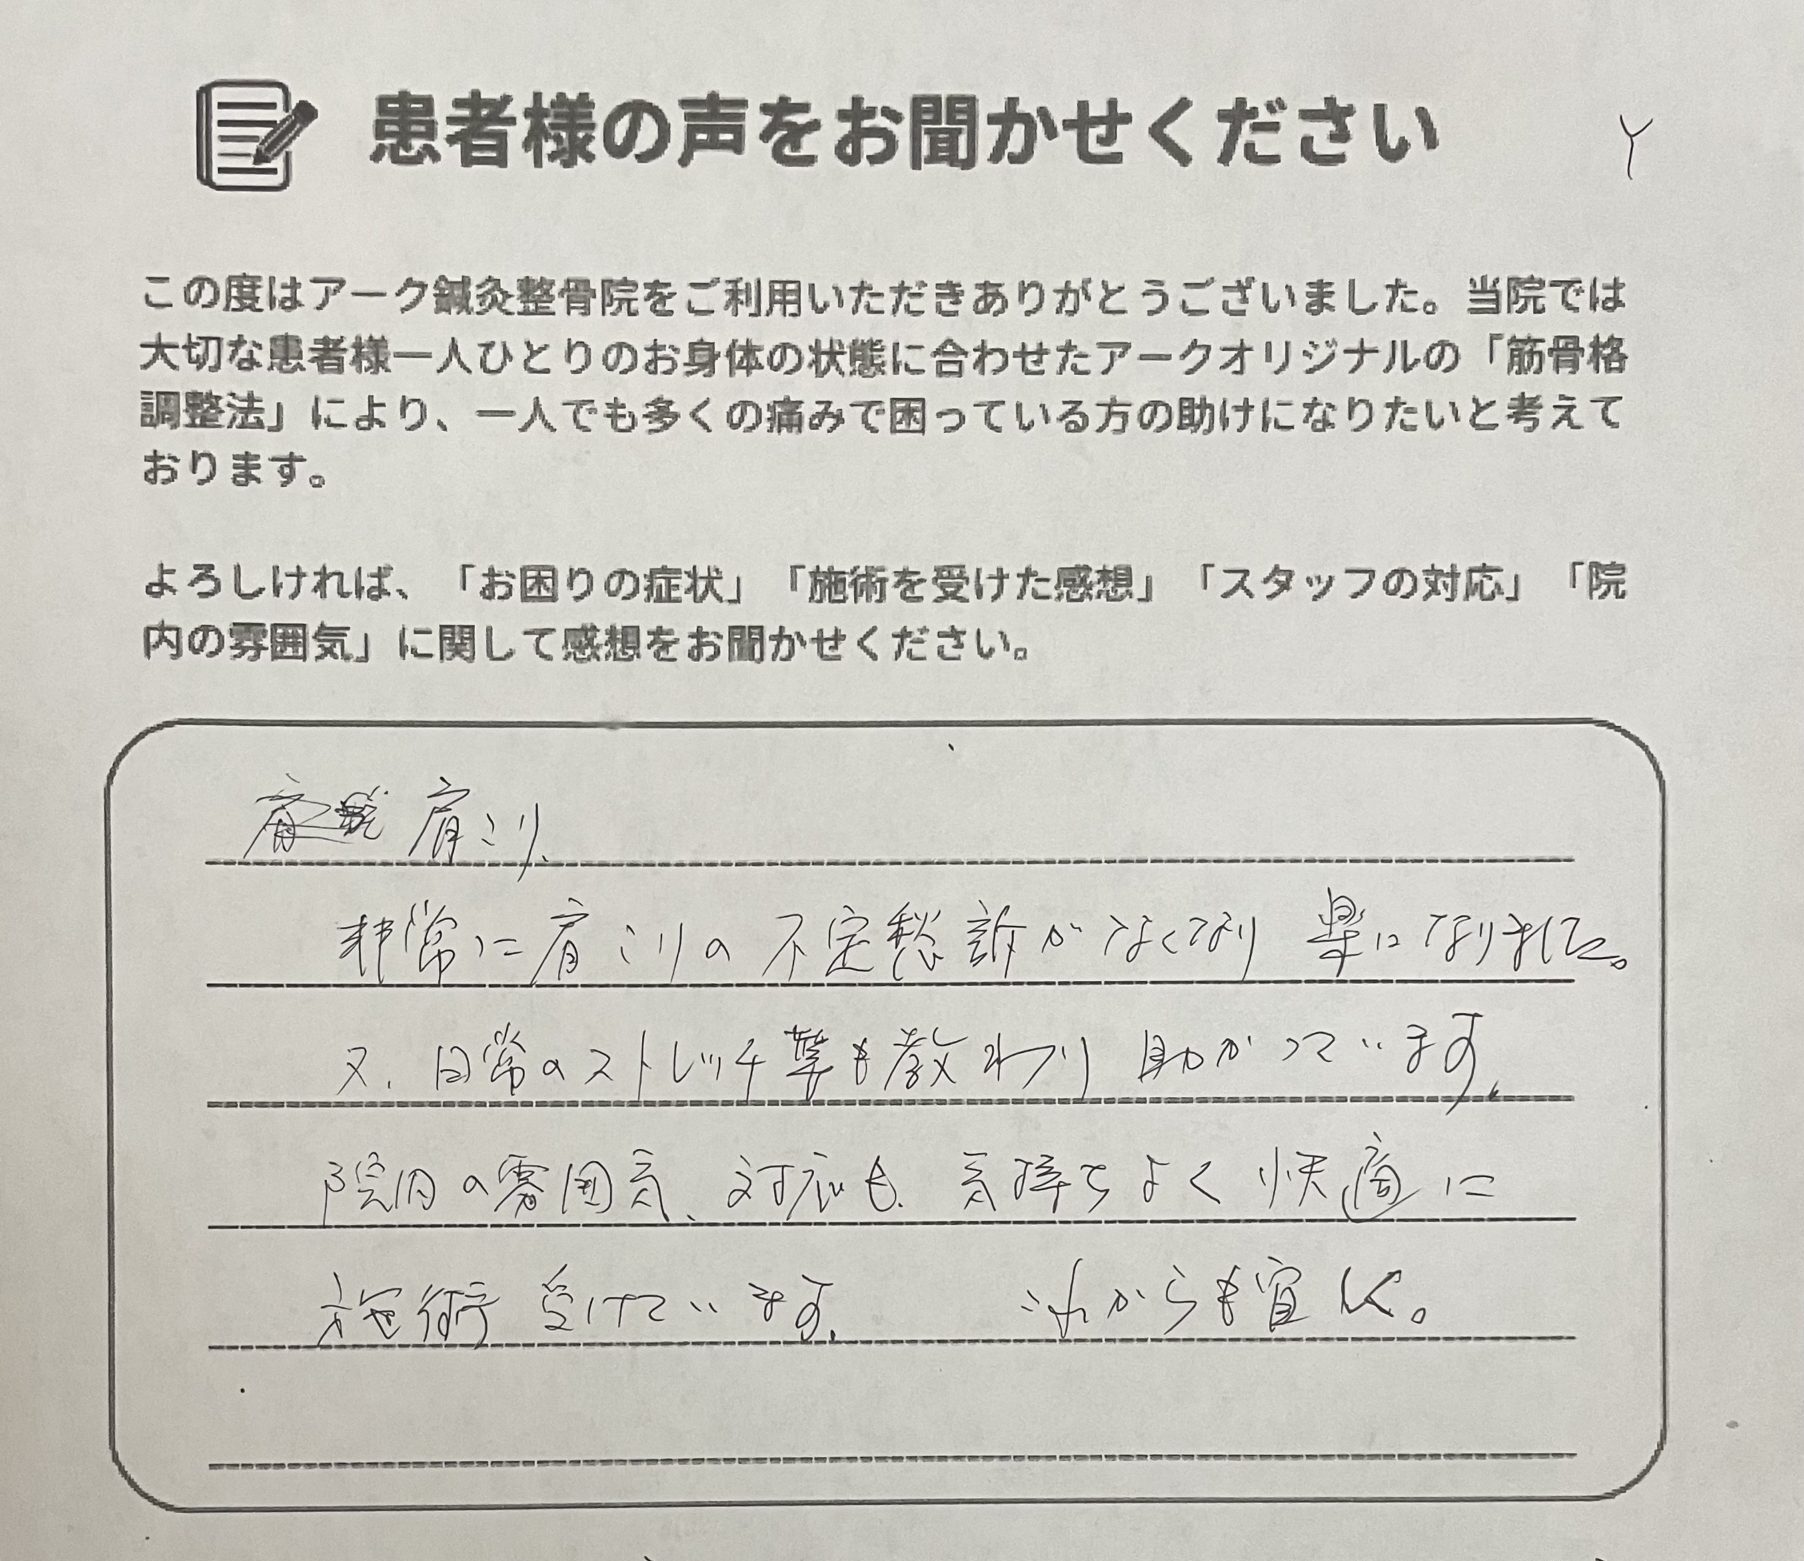 患者様の声をお聞かせください
Y
この度はアーク鍼灸整骨院をご利用いただきありがとうございました。当院では
大切な患者様一人ひとりのお身体の状態に合わせたアークオリジナルの「筋骨格
調整法」により、一人でも多くの痛みで困っている方の助けになりたいと考えて
おります。
よろしければ、「お困りの症状」「施術を受けた感想」「スタッフの対応」「院
内の雰囲気」に関して感想をお聞かせください。
肩こり、
非常に肩こりの不定愁訴がなくなり 楽になりました。
又、日常のストレッチ等も教わり 助かっています。
院内の雰囲気、対応も、気持ちよく快適に
施術受けています。 これからも宜しく。